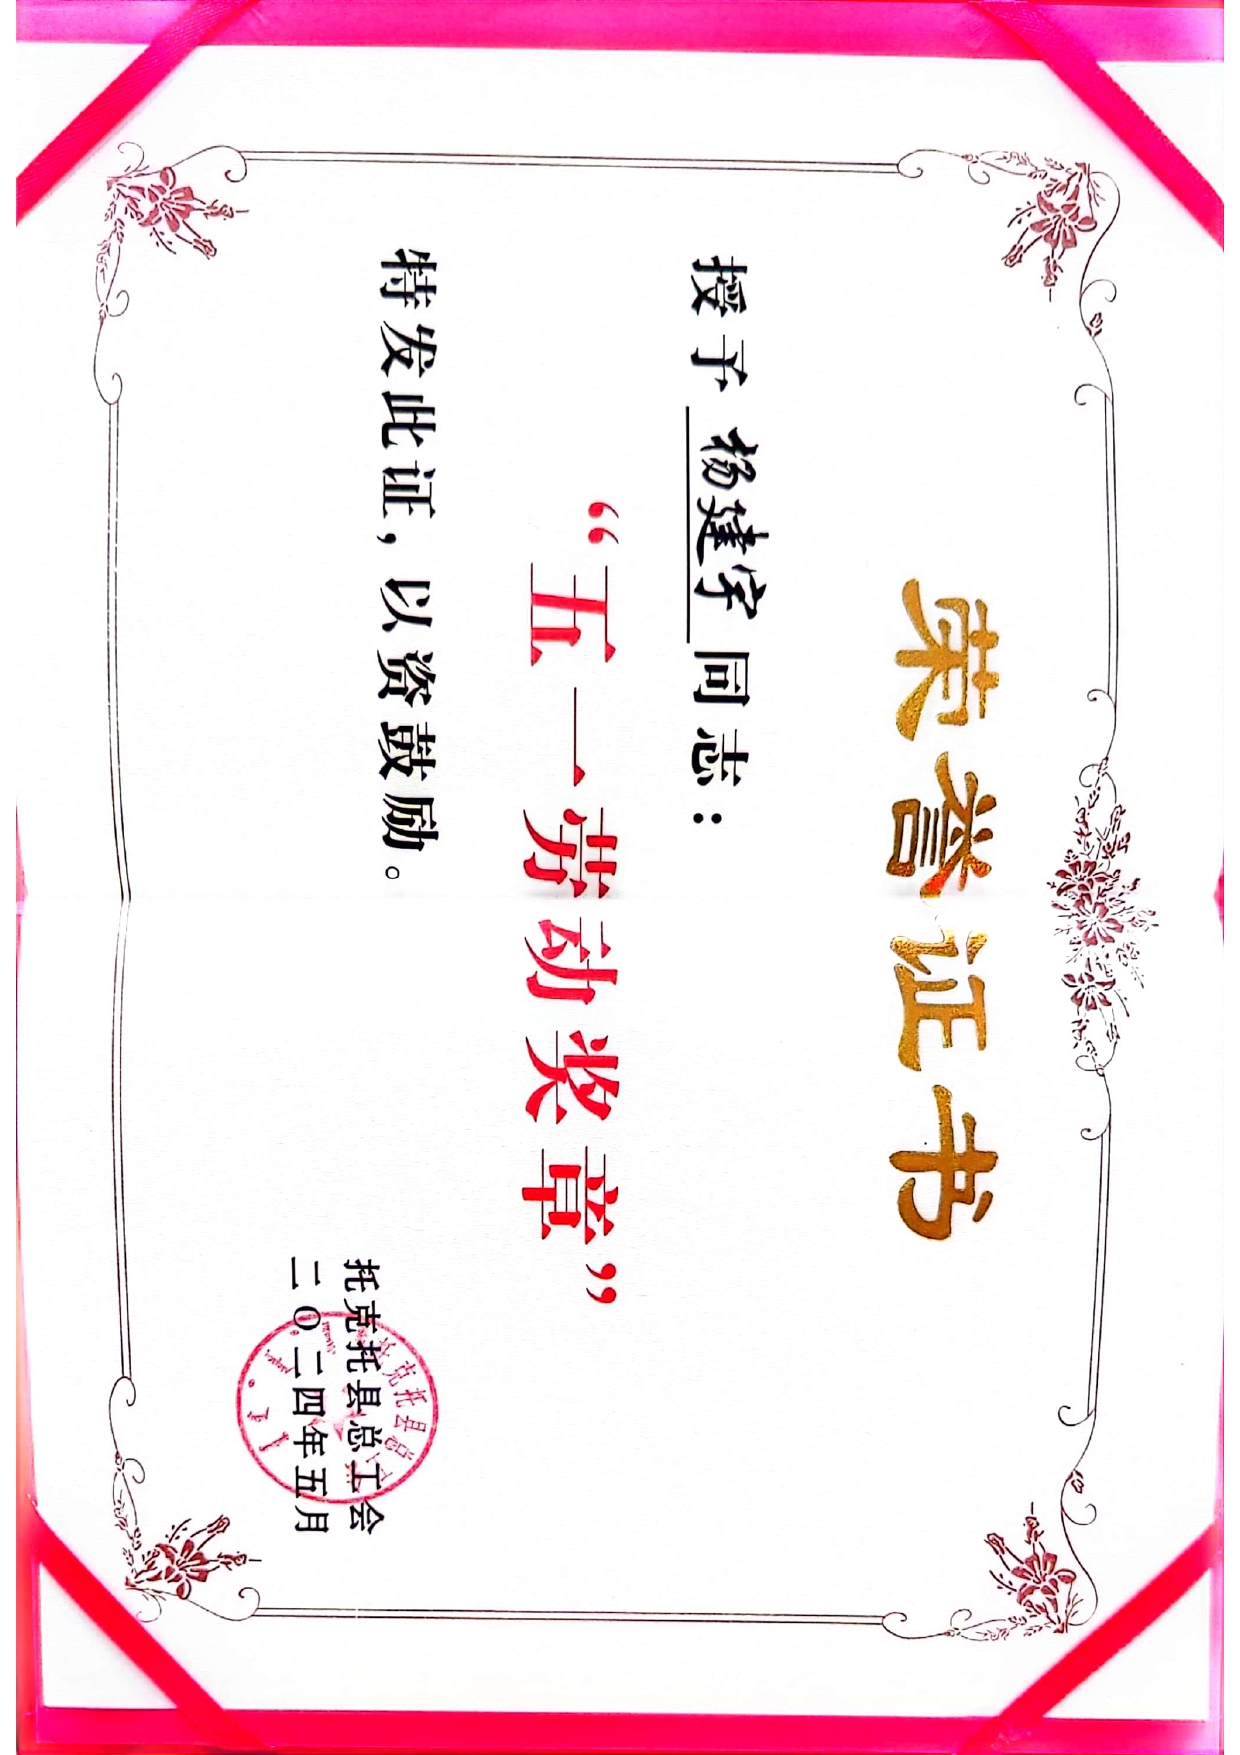 荣誉证书
授予 杨建宇 同志：
“五一劳动奖章”
特发此证，以资鼓励。
托克托县总工会
二〇二四年五月
托克托县总工